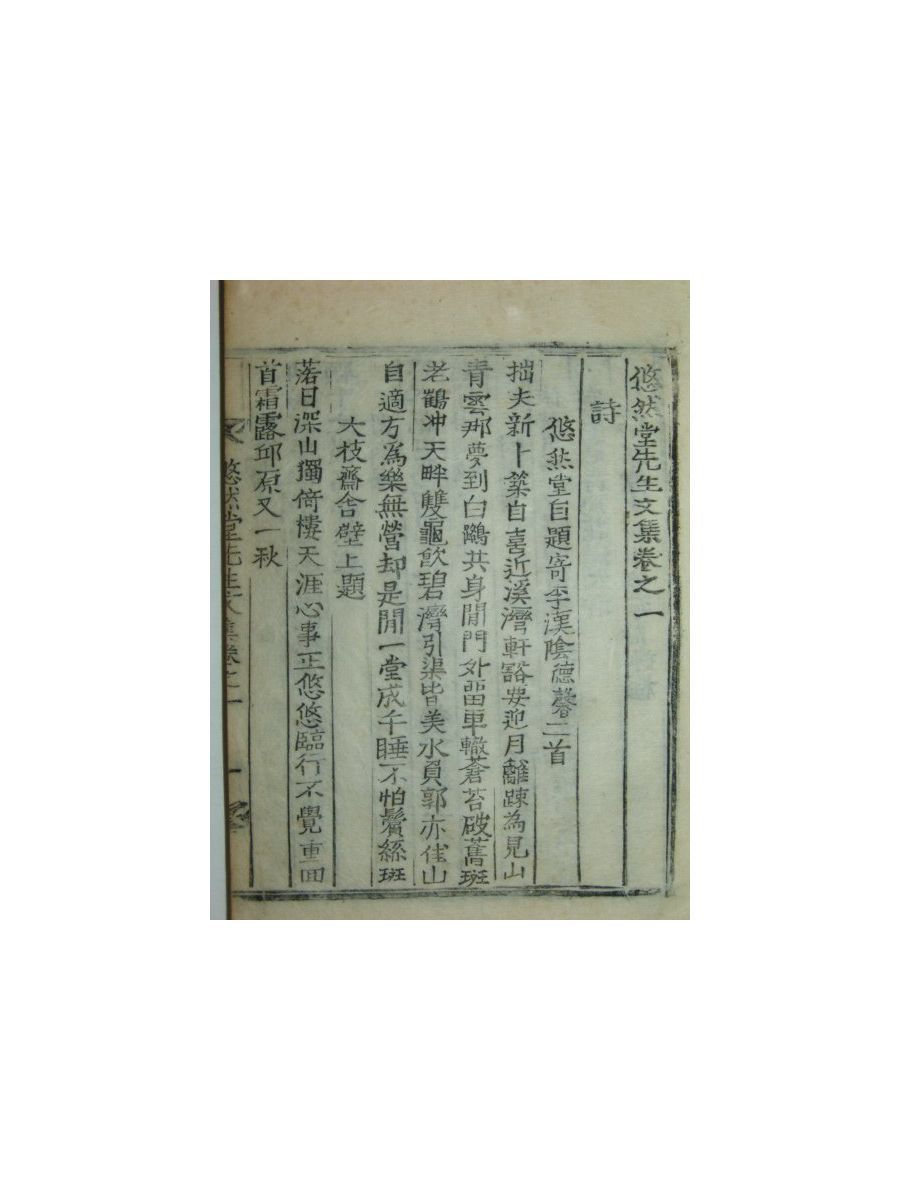 悠然堂先生文集卷之一
詩
悠然堂自題寄李漢陰德馨二首
拙夫新卜築自喜近溪灣軒豁要迎月籬踈為見山
青雲那夢到白鷗共身閒門外留車轍蒼苔破舊斑
老鶴冲天畔雙龜飮碧灣引渠皆美水負郭亦佳山
自適方爲樂無營却是閒一堂成午睡不怕鬢絲斑
大枝齋舍壁上題
落日深山獨倚樓天涯心事正悠悠臨行不覺重回
首霜露邱原又一秋
悠然堂先生文集卷之一 一